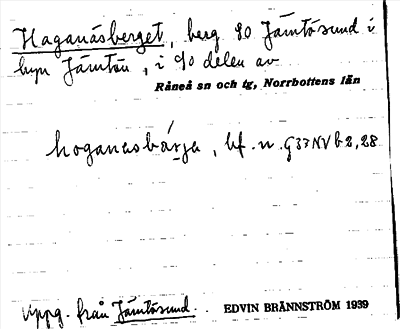 Haganäsberget, berg SO Jämtösund i
byn Jämtön, i SO delen av
Råneå sn och tg, Norrbottens län
hoganasbárja, bf. n. G33NVb2,28
Uppg. från Jämtösund. EDVIN BRÄNNSTRÖM 1939